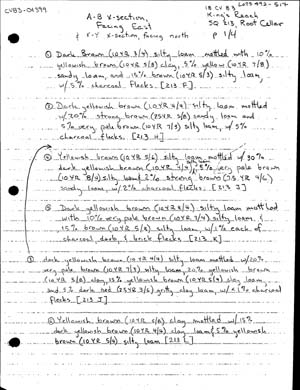 CVB3-01399
A-B x-section,
Facing East
& X-Y x-section, facing north
18 CV 83
King's Reach
SQ 213, Root Cellar
p 1/4
① Dark Brown (10YR 3/3) silty loam mottled with 10%
yellowish brown (10YR 5/8) clay, 5% yellow (10YR 7/8)
sandy loam, and 15% brown (10YR 5/3) silty loam,
w/ 5% charcoal flecks. [213 F]
② Dark yellowish brown (10YR 4/4) silty loam mottled
w/ 20% strong brown (7.5YR 5/8) sandy loam and
5% very pale brown (10YR 7/3) silty loam, w/ 5%
charcoal flecks. [213 H]
Yellowish brown (10YR 5/6) silty loam mottled w/ 30%
dark yellowish brown (10YR 4/4), 5% very pale brown
(10YR 8/4) silty loam, 2% strong brown (7.5YR 4/6)
sandy loam, w/ 2% charcoal flecks. [213 J]
Dark yellowish brown (10YR 4/4) silty loam mottled
with 10% very pale brown (10YR 7/4) silty loam, &
15% brown (10YR 5/3) silty loam, w/ 1% each of
charcoal, daub, & brick flecks [213 K]
dark yellowish brown (10YR 4/4) silty loam mottled w/ 20%
very pale brown (10YR 7/3) silty loam, 20% yellowish brown
(10YR 5/8) clay, 15% yellowish brown (10YR 5/4) clay loam,
and 5% dark red (2.5YR 3/6) silty clay loam, w/ <1% charcoal
flecks. [213 J]
⑥ Yellowish brown (10YR 5/8) clay mottled w/ 15%
dark yellowish brown (10YR 4/4) clay loam & 5% yellowish
brown (10YR 5/6) silty loam [213 L]